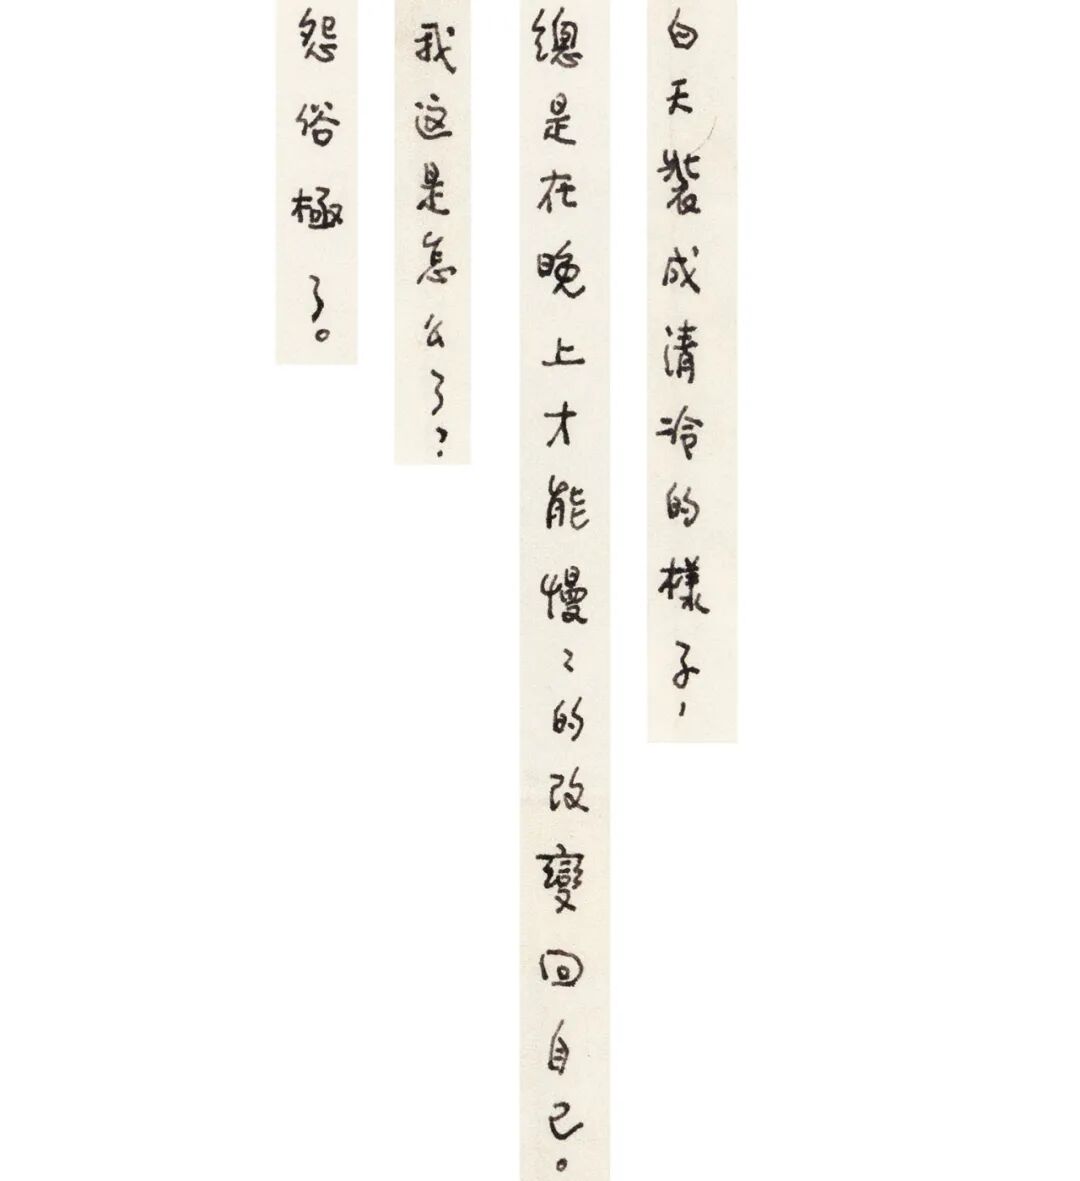 白天裝成清冷的樣子，
總是在晚上才能慢〻的改變回自己。
我这是怎么了？
怨俗極了。